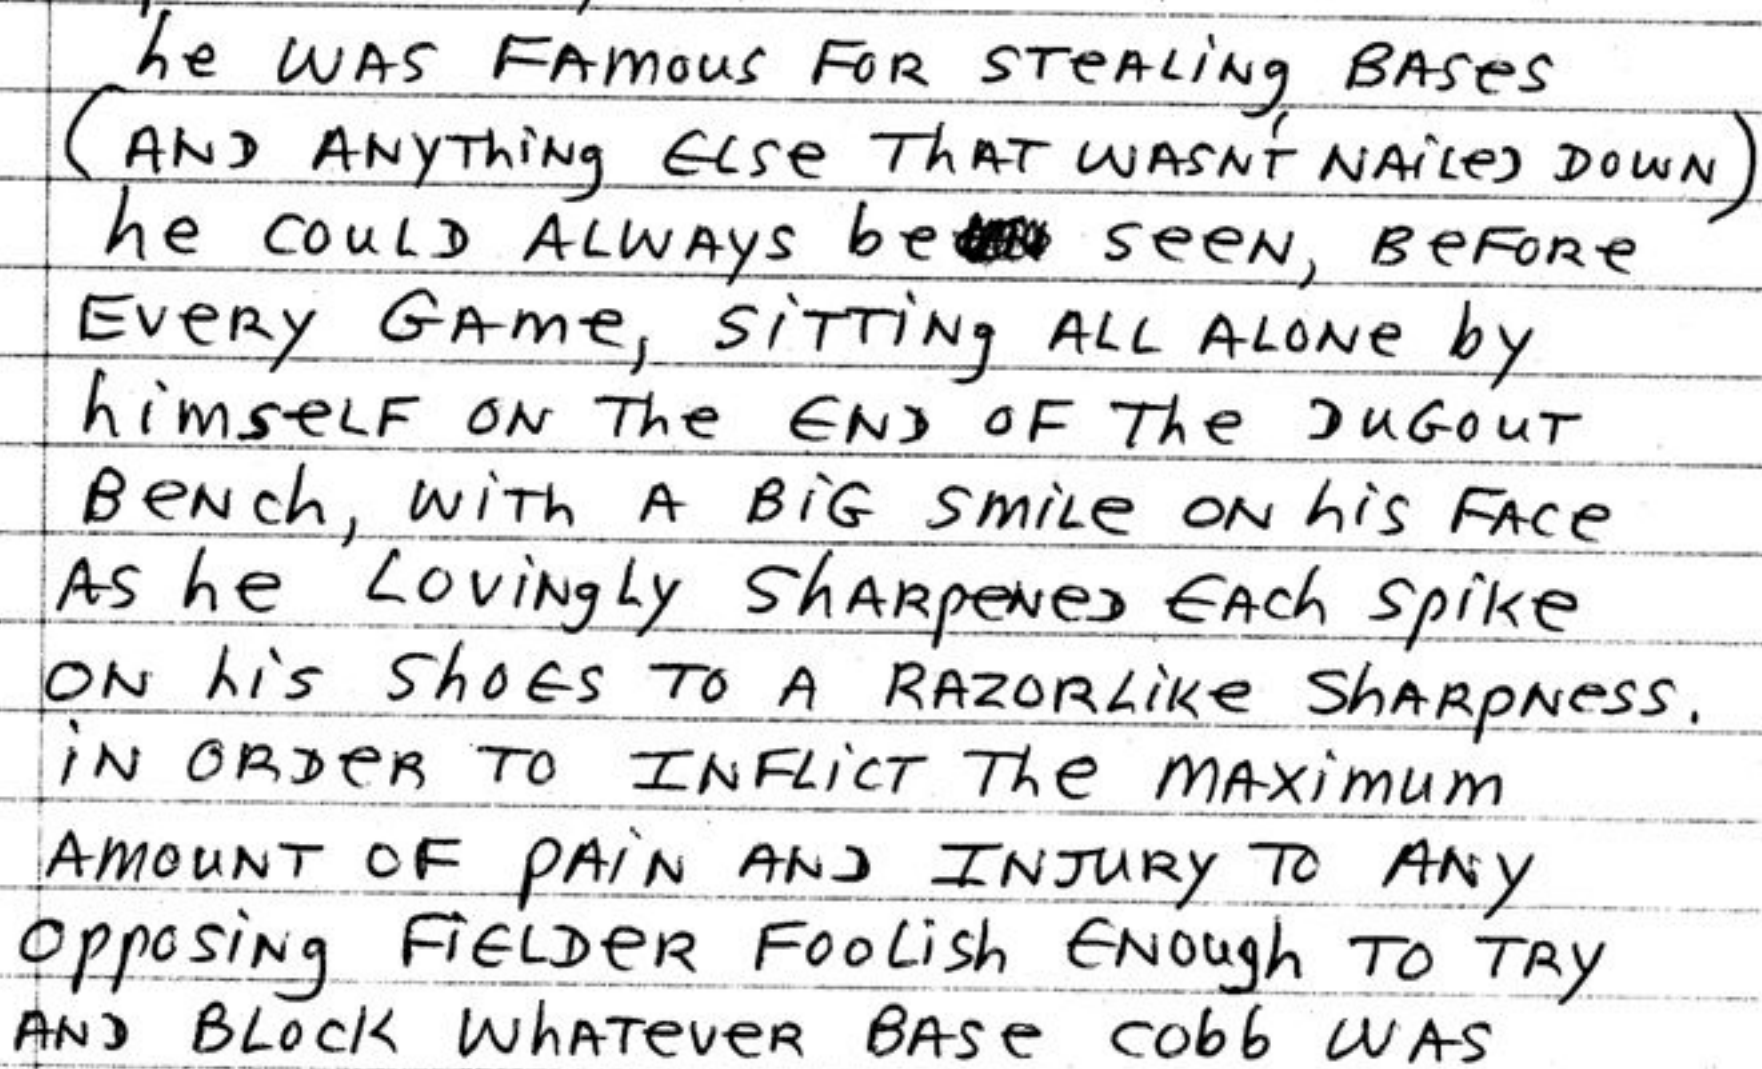 he WAS FAMOUS FOR STEALING BASES
(AND ANYThiNg ELSE ThAT WASN'T NAILED DOWN)
he COULD ALWAYS be SEEN, BEFORE
EVERY GAME, SITTING ALL ALONE by
himSELF ON The END OF The DUGOUT
BENch, WITh A BIG SMILE ON his FACE
AS he LOVINGLY ShARPENED EACh SPIKE
ON his ShOES TO A RAZORLIKE ShARPNESS.
IN ORDER TO INFLICT The MAXIMUM
AMOUNT OF PAIN AND INJURY TO ANY
OPPOSING FIELDER FOOLISh ENOUGh TO TRY
AND BLOCK WhATEVER BASE CObb WAS